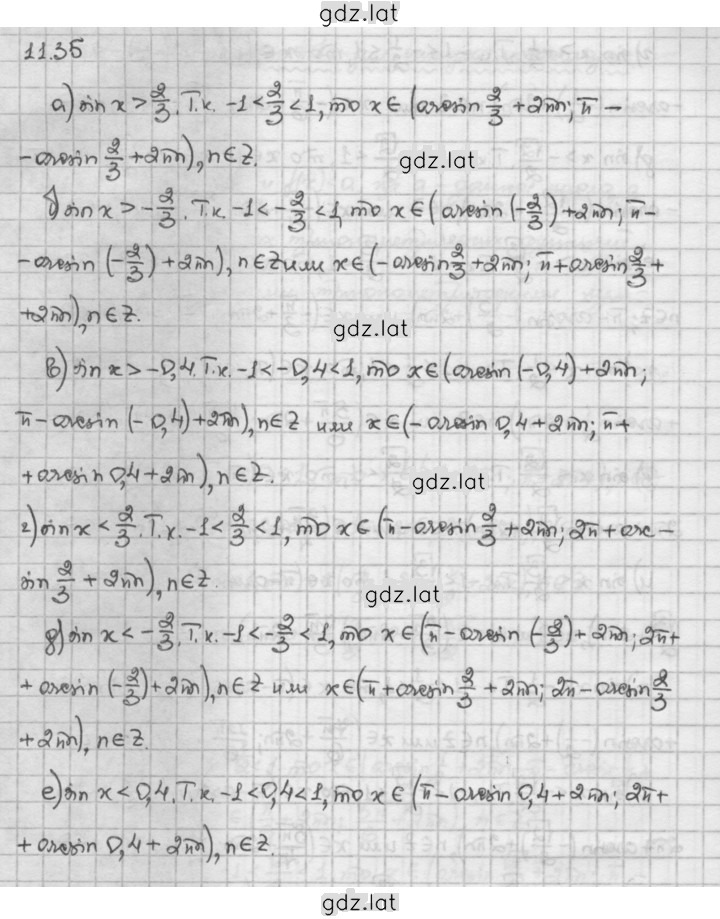 gdz.lat
11.35
а) sin x > 2/3. Т.к. -1 < 2/3 < 1, то x ∈ (arcsin 2/3 + 2πn; π -
- arcsin 2/3 + 2πn), n ∈ Z.
gdz.lat
б) sin x > -2/3. Т.к. -1 < -2/3 < 1, то x ∈ (arcsin (-2/3) + 2πn; π -
- arcsin (-2/3) + 2πn), n ∈ Z или x ∈ (-arcsin 2/3 + 2πn; π + arcsin 2/3 +
+ 2πn), n ∈ Z.
gdz.lat
в) sin x > -0,4. Т.к. -1 < -0,4 < 1, то x ∈ (arcsin (-0,4) + 2πn;
π - arcsin (-0,4) + 2πn), n ∈ Z или x ∈ (-arcsin 0,4 + 2πn; π +
+ arcsin 0,4 + 2πn), n ∈ Z.
gdz.lat
г) sin x < 2/3. Т.к. -1 < 2/3 < 1, то x ∈ (π - arcsin 2/3 + 2πn; 2π + arc-
sin 2/3 + 2πn), n ∈ Z.
gdz.lat
д) sin x < -2/3. Т.к. -1 < -2/3 < 1, то x ∈ (π - arcsin (-2/3) + 2πn; 2π +
+ arcsin (-2/3) + 2πn), n ∈ Z или x ∈ (π + arcsin 2/3 + 2πn; 2π - arcsin 2/3
+ 2πn), n ∈ Z.
е) sin x < 0,4. Т.к. -1 < 0,4 < 1, то x ∈ (π - arcsin 0,4 + 2πn; 2π +
+ arcsin 0,4 + 2πn), n ∈ Z.
gdz.lat